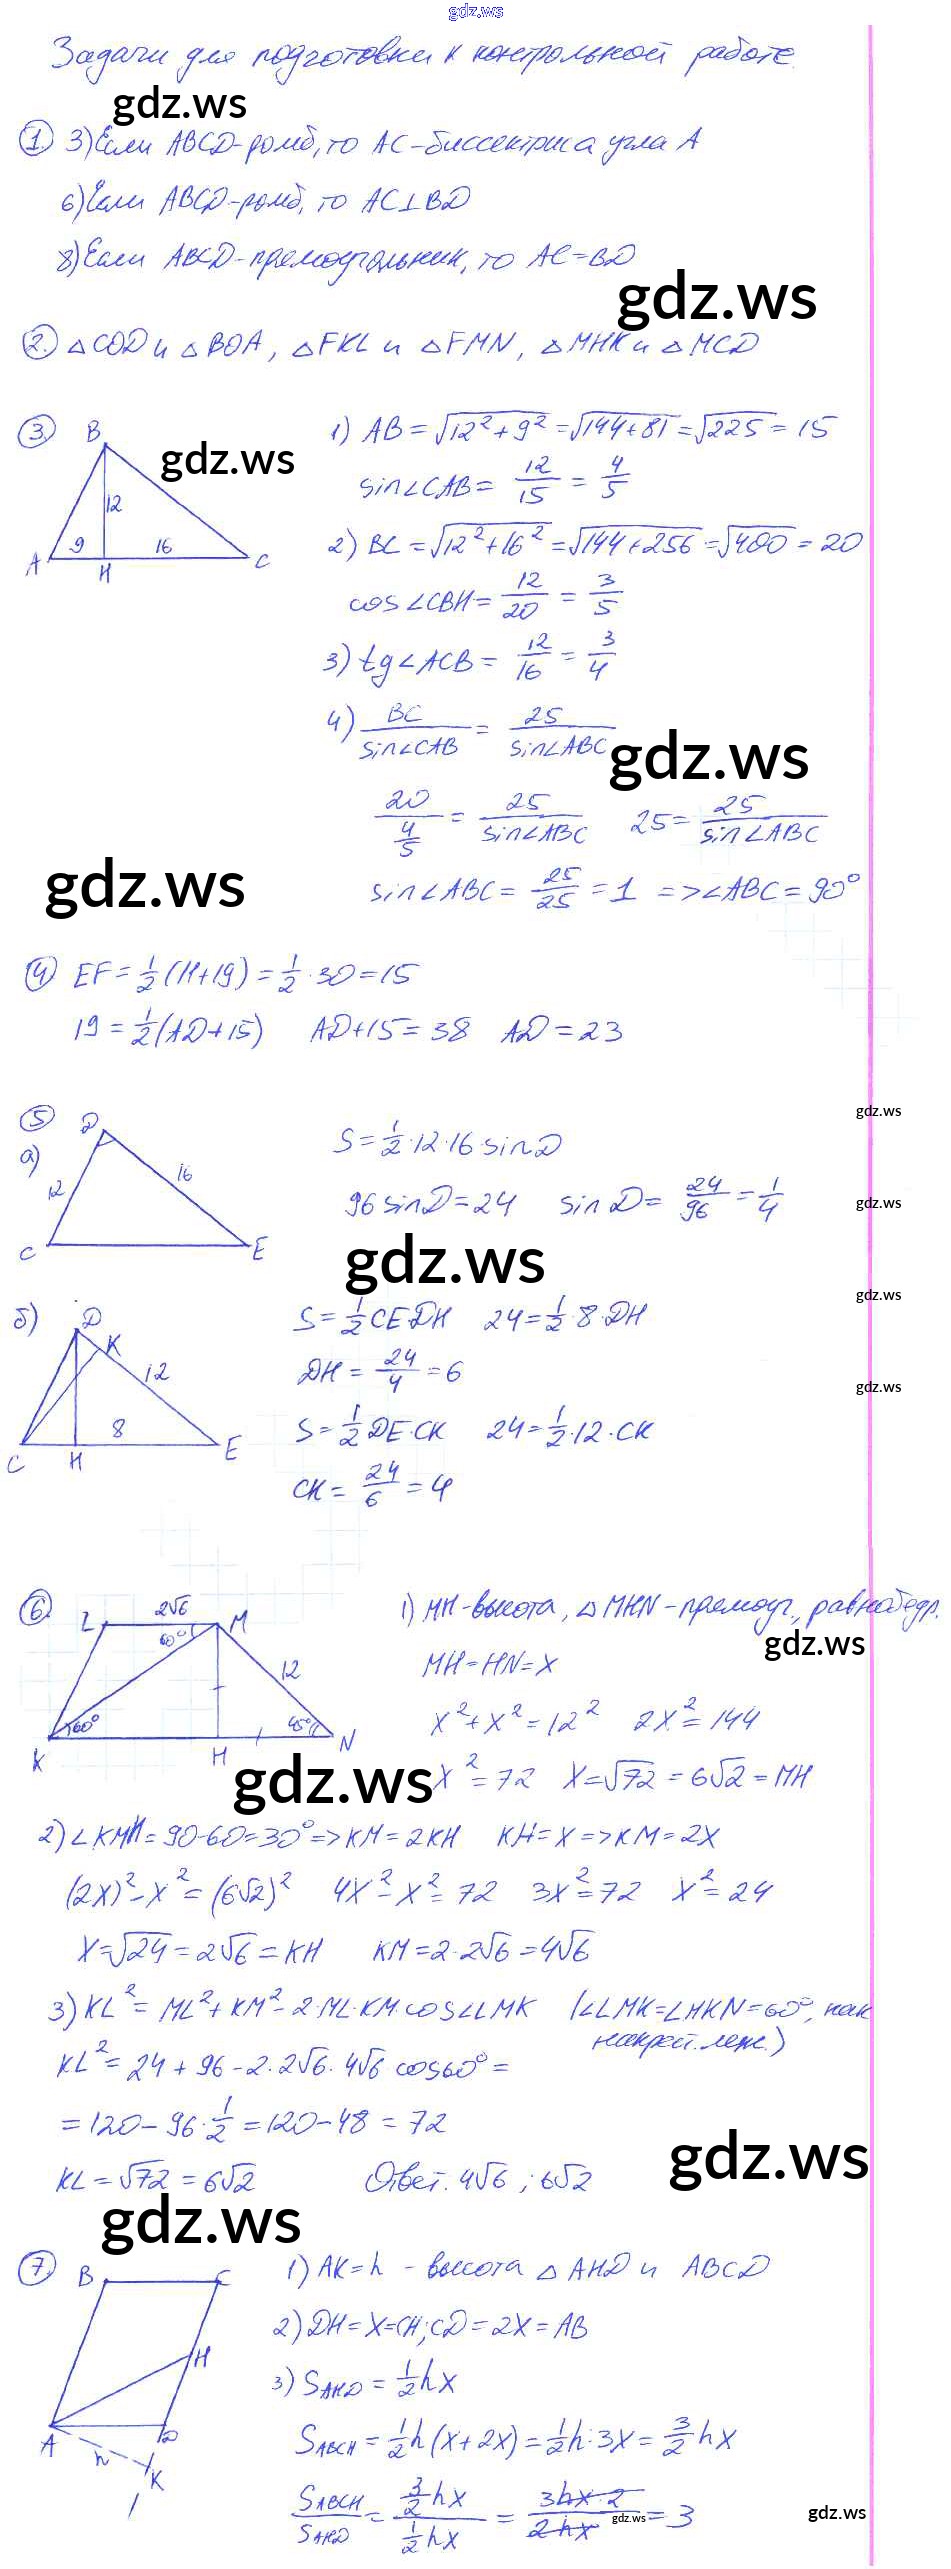 gdz.ws
Задачи для подготовки к контрольной работе.
gdz.ws
① 3) Если ABCD-ромб, то AC-биссектриса угла A
6) Если ABCD-ромб, то AC⊥BD
8) Если ABCD-прямоугольник, то AC=BD
gdz.ws
② △COD и △BOA, △FKL и △FMN, △MHK и △MCD
③ B 12 9 16 A H C
gdz.ws
1) AB = √12²+9² = √144+81 = √225 = 15
sin∠CAB = 12/15 = 4/5
2) BC = √12²+16² = √144+256 = √400 = 20
cos∠CBH = 12/20 = 3/5
3) tg∠ACB = 12/16 = 3/4
4) BC/sin∠CAB = 25/sin∠ABC
gdz.ws
20/(4/5) = 25/sin∠ABC 25 = 25/sin∠ABC
gdz.ws
sin∠ABC = 25/25 = 1 => ∠ABC = 90°
④ EF = 1/2(11+19) = 1/2·30 = 15
19 = 1/2(AD+15) AD+15 = 38 AD = 23
gdz.ws
⑤ а) D 12 16 C E
S = 1/2·12·16·sinD
96 sinD = 24 sinD = 24/96 = 1/4
gdz.ws
gdz.ws
gdz.ws
б) D K 12 8 C H E
S = 1/2 CE·DH 24 = 1/2·8·DH
DH = 24/4 = 6
gdz.ws
S = 1/2 DE·CK 24 = 1/2·12·CK
CK = 24/6 = 4
⑥ L 2√6 M 60° 12 60° 45° K H N
1) MH-высота, △MHN-прямоуг., равнобедр.
gdz.ws
MH = HN = x
x²+x² = 12² 2x² = 144
gdz.ws
x² = 72 x = √72 = 6√2 = MH
2) ∠KMH = 90-60 = 30° => KM = 2KH KH = x => KM = 2x
(2x)²-x² = (6√2)² 4x²-x² = 72 3x² = 72 x² = 24
x = √24 = 2√6 = KH KM = 2·2√6 = 4√6
3) KL² = ML²+KM²-2·ML·KM·cos∠LMK (∠LMK=∠MKN=60°, как
накрест. леж.)
KL² = 24+96-2·2√6·4√6 cos60° =
= 120-96·1/2 = 120-48 = 72
gdz.ws
KL = √72 = 6√2 Ответ: 4√6; 6√2
gdz.ws
⑦ B C H A D h K
1) AK = h - высота △AHD и ABCD
2) DH = x = CH; CD = 2x = AB
3) S_AHD = 1/2hx
S_ABCH = 1/2h(x+2x) = 1/2h·3x = 3/2hx
S_ABCH/S_AHD = (3/2hx)/(1/2hx) = 3hx·2/2hx = 3
gdz.ws
gdz.ws